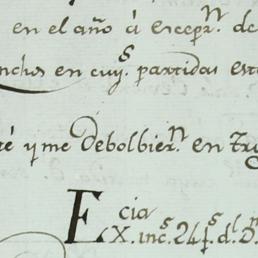 en el año á excepn. de
nchos en cuys. partidas est
té y me debolbiern. en tr
Ecia
X. incs. 24 ps. dl. D.